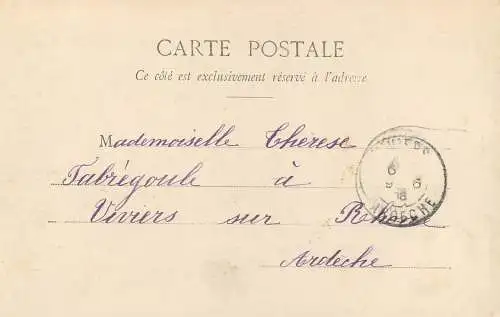 CARTE POSTALE
Ce côté est exclusivement réservé à l'adresse
Mademoiselle Therese
Fabrégoule à
Viviers sur Rhone
Ardeche
ARDECHE